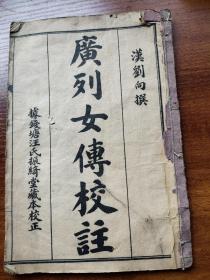 漢劉向撰
廣列女傳校註
據錢塘汪氏振綺堂藏本校正